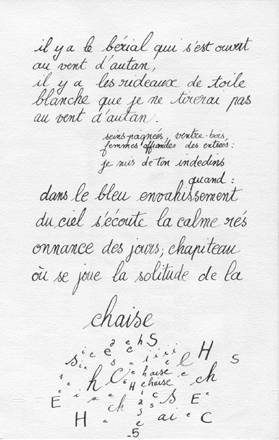 il y a le bérial qui s'est ouvert
au vent d'autan,
il y a les rideaux de toile
blanche que je ne tirerai pas
au vent d'autan.
seins pagnées, ventre-bois,
femmes des entrées:
je suis de ton indedins
quand:
dans le bleu envahissement
du ciel s'écoute la calme rés
onnance des jours; chapiteau
où se joue la solitude de la
chaise